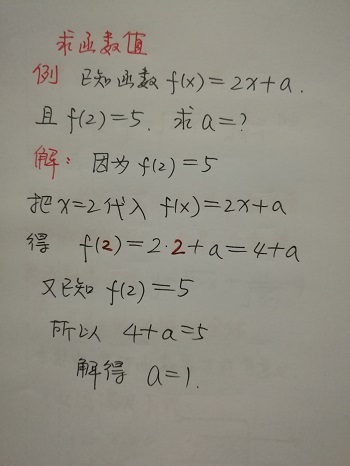 求函数值
例 已知函数 f(x)=2x+a.
且 f(2)=5. 求 a=?
解: 因为 f(2)=5
把 x=2 代入 f(x)=2x+a
得 f(2)=2·2+a=4+a
又已知 f(2)=5
所以 4+a=5
解得 a=1.